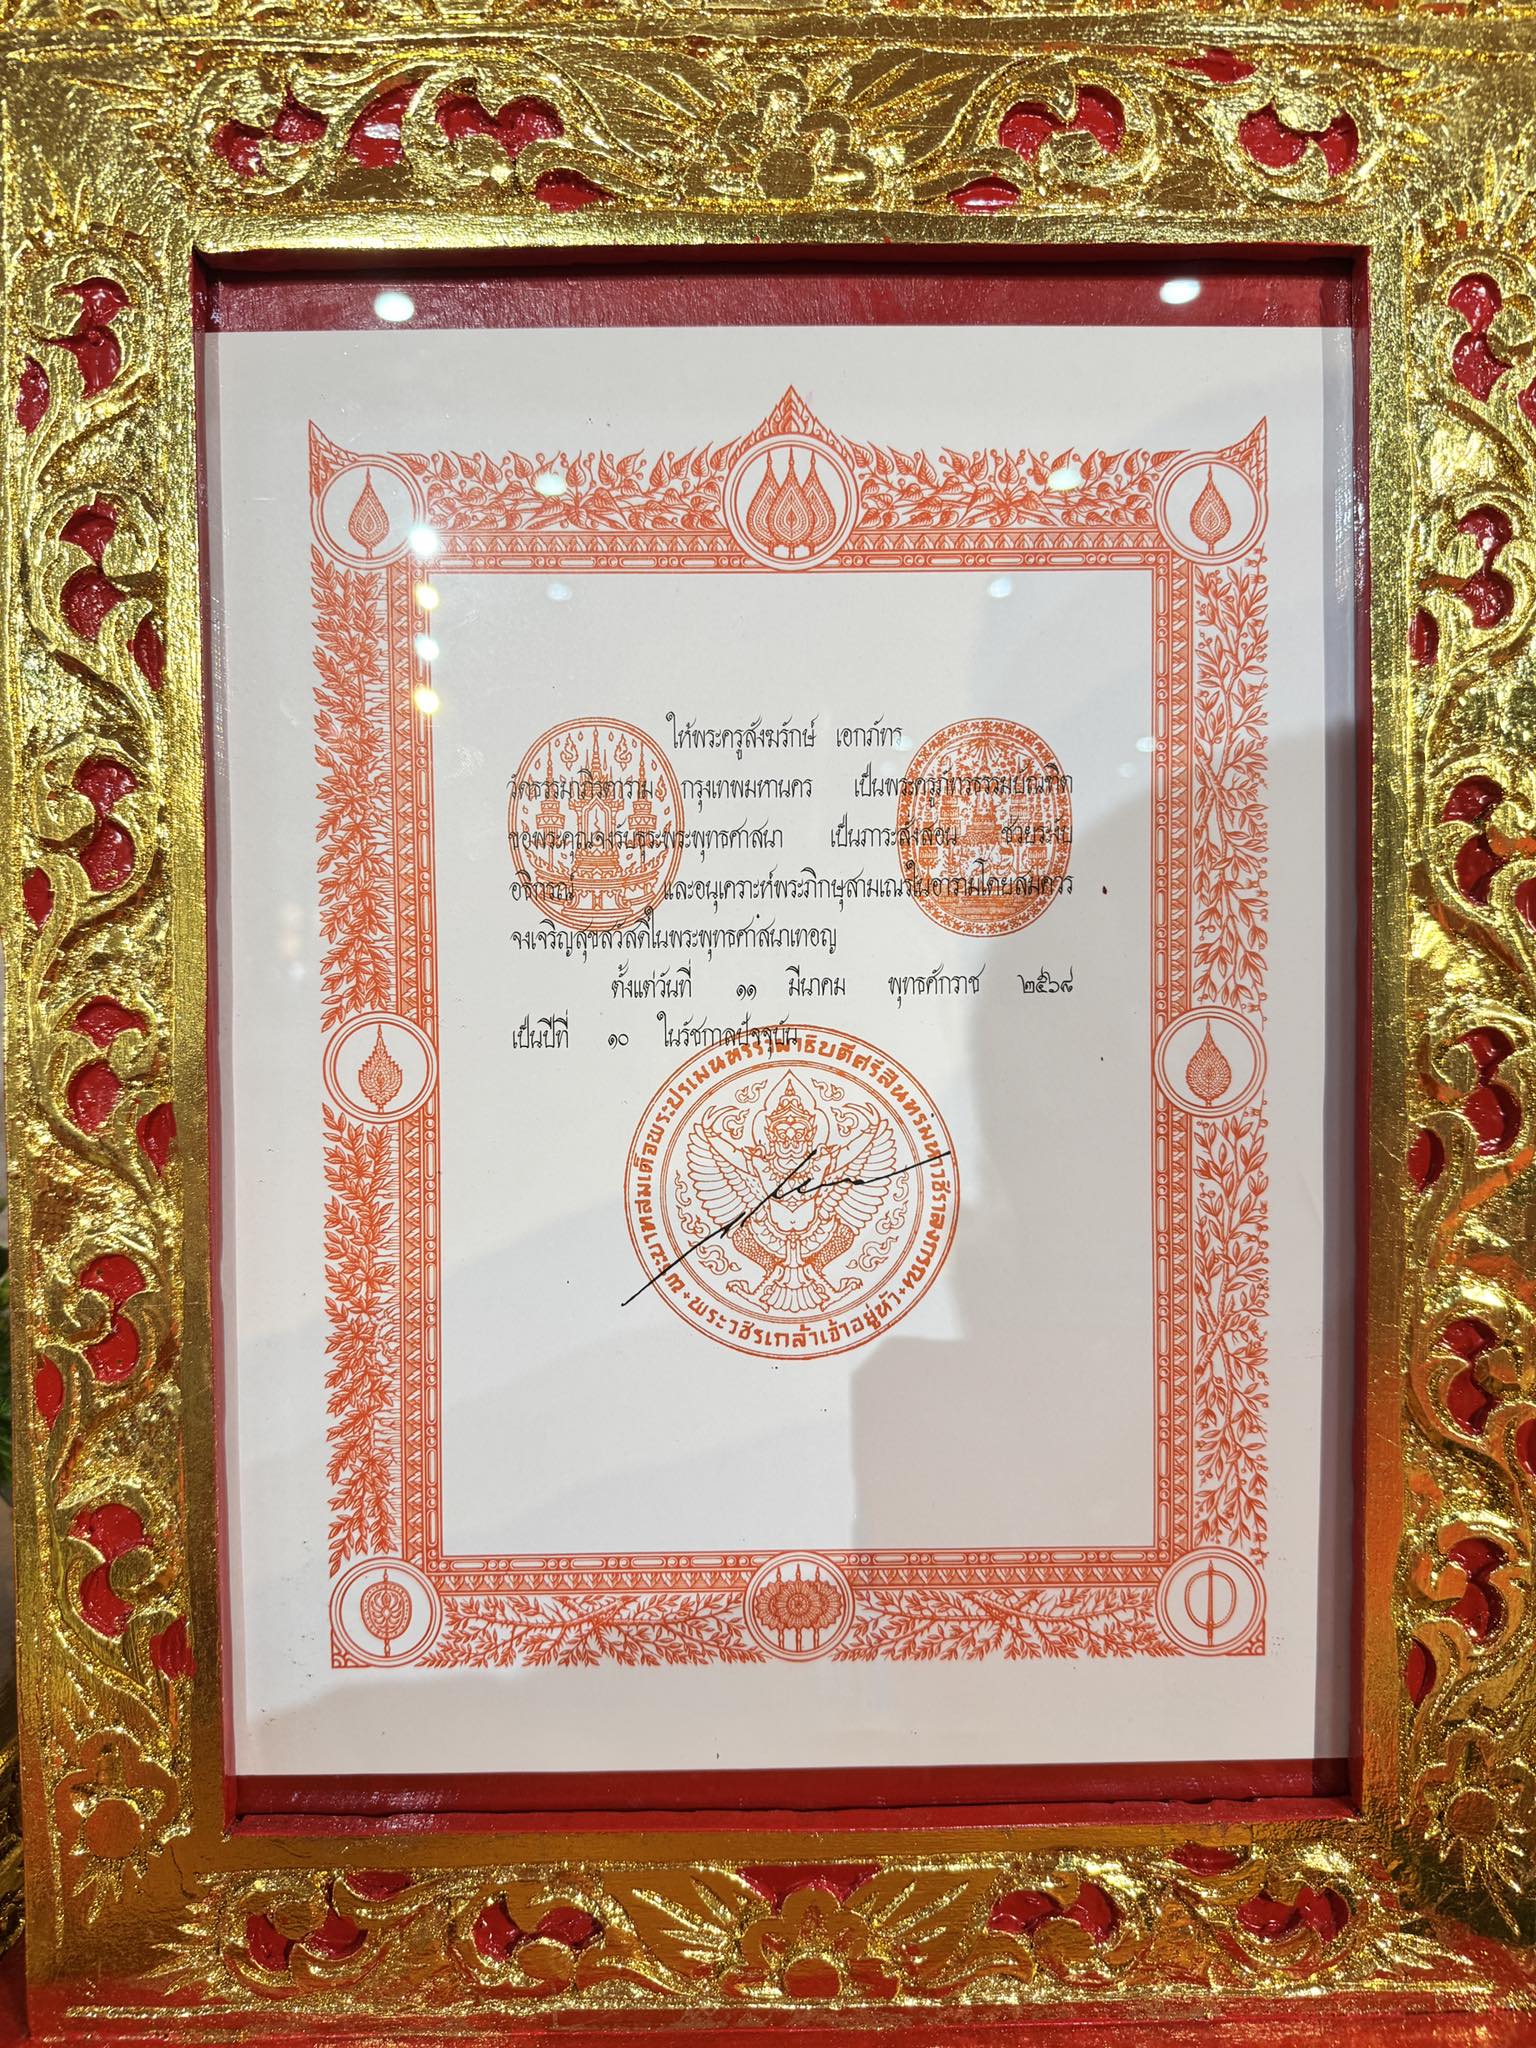 ให้พระครูสังฆรักษ์ เอกภัทร
วัดธรรมาภิรตาราม กรุงเทพมหานคร เป็นพระครูภัทรธรรมบัณฑิต
ขอพระคุณจงรับธุระพระพุทธศาสนา เป็นภาระสั่งสอน ช่วยระงับ
อธิกรณ์ และอนุเคราะห์พระภิกษุสามเณรในอารามโดยสมควร
จงเจริญสุขสวัสดิ์ในพระพุทธศาสนาเทอญ
ตั้งแต่วันที่ ๑๑ มีนาคม พุทธศักราช ๒๕๖๙
เป็นปีที่ ๑๐ ในรัชกาลปัจจุบัน
พระบาทสมเด็จพระปรเมนทรรามาธิบดีศรีสินทรมหาวชิราลงกรณ
พระวชิรเกล้าเจ้าอยู่หัว